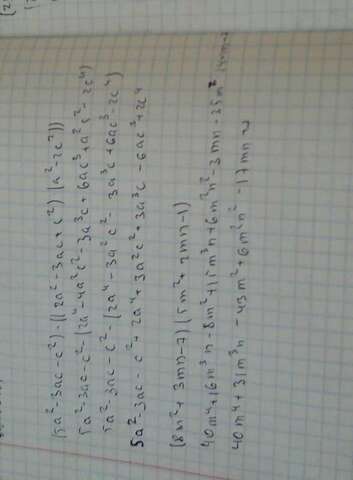 (5a²-3ac-c²)-((2a²-3ac+c²)(a²-2c²))
5a²-3ac-c²-(2a⁴-4a²c²-3a³c+6ac³+a²c²-2c⁴)
5a²-3ac-c²-(2a⁴-3a²c²-3a³c+6ac³-2c⁴)
5a²-3ac-c²+2a⁴+3a²c²+3a³c-6ac³+2c⁴
(8m²+3mn-7)(5m²+2mn-1)
40m⁴+16m³n-8m²+15m³n+6m²n²-3mn-35m²
40m⁴+31m³n-43m²+6m²n²-17mn